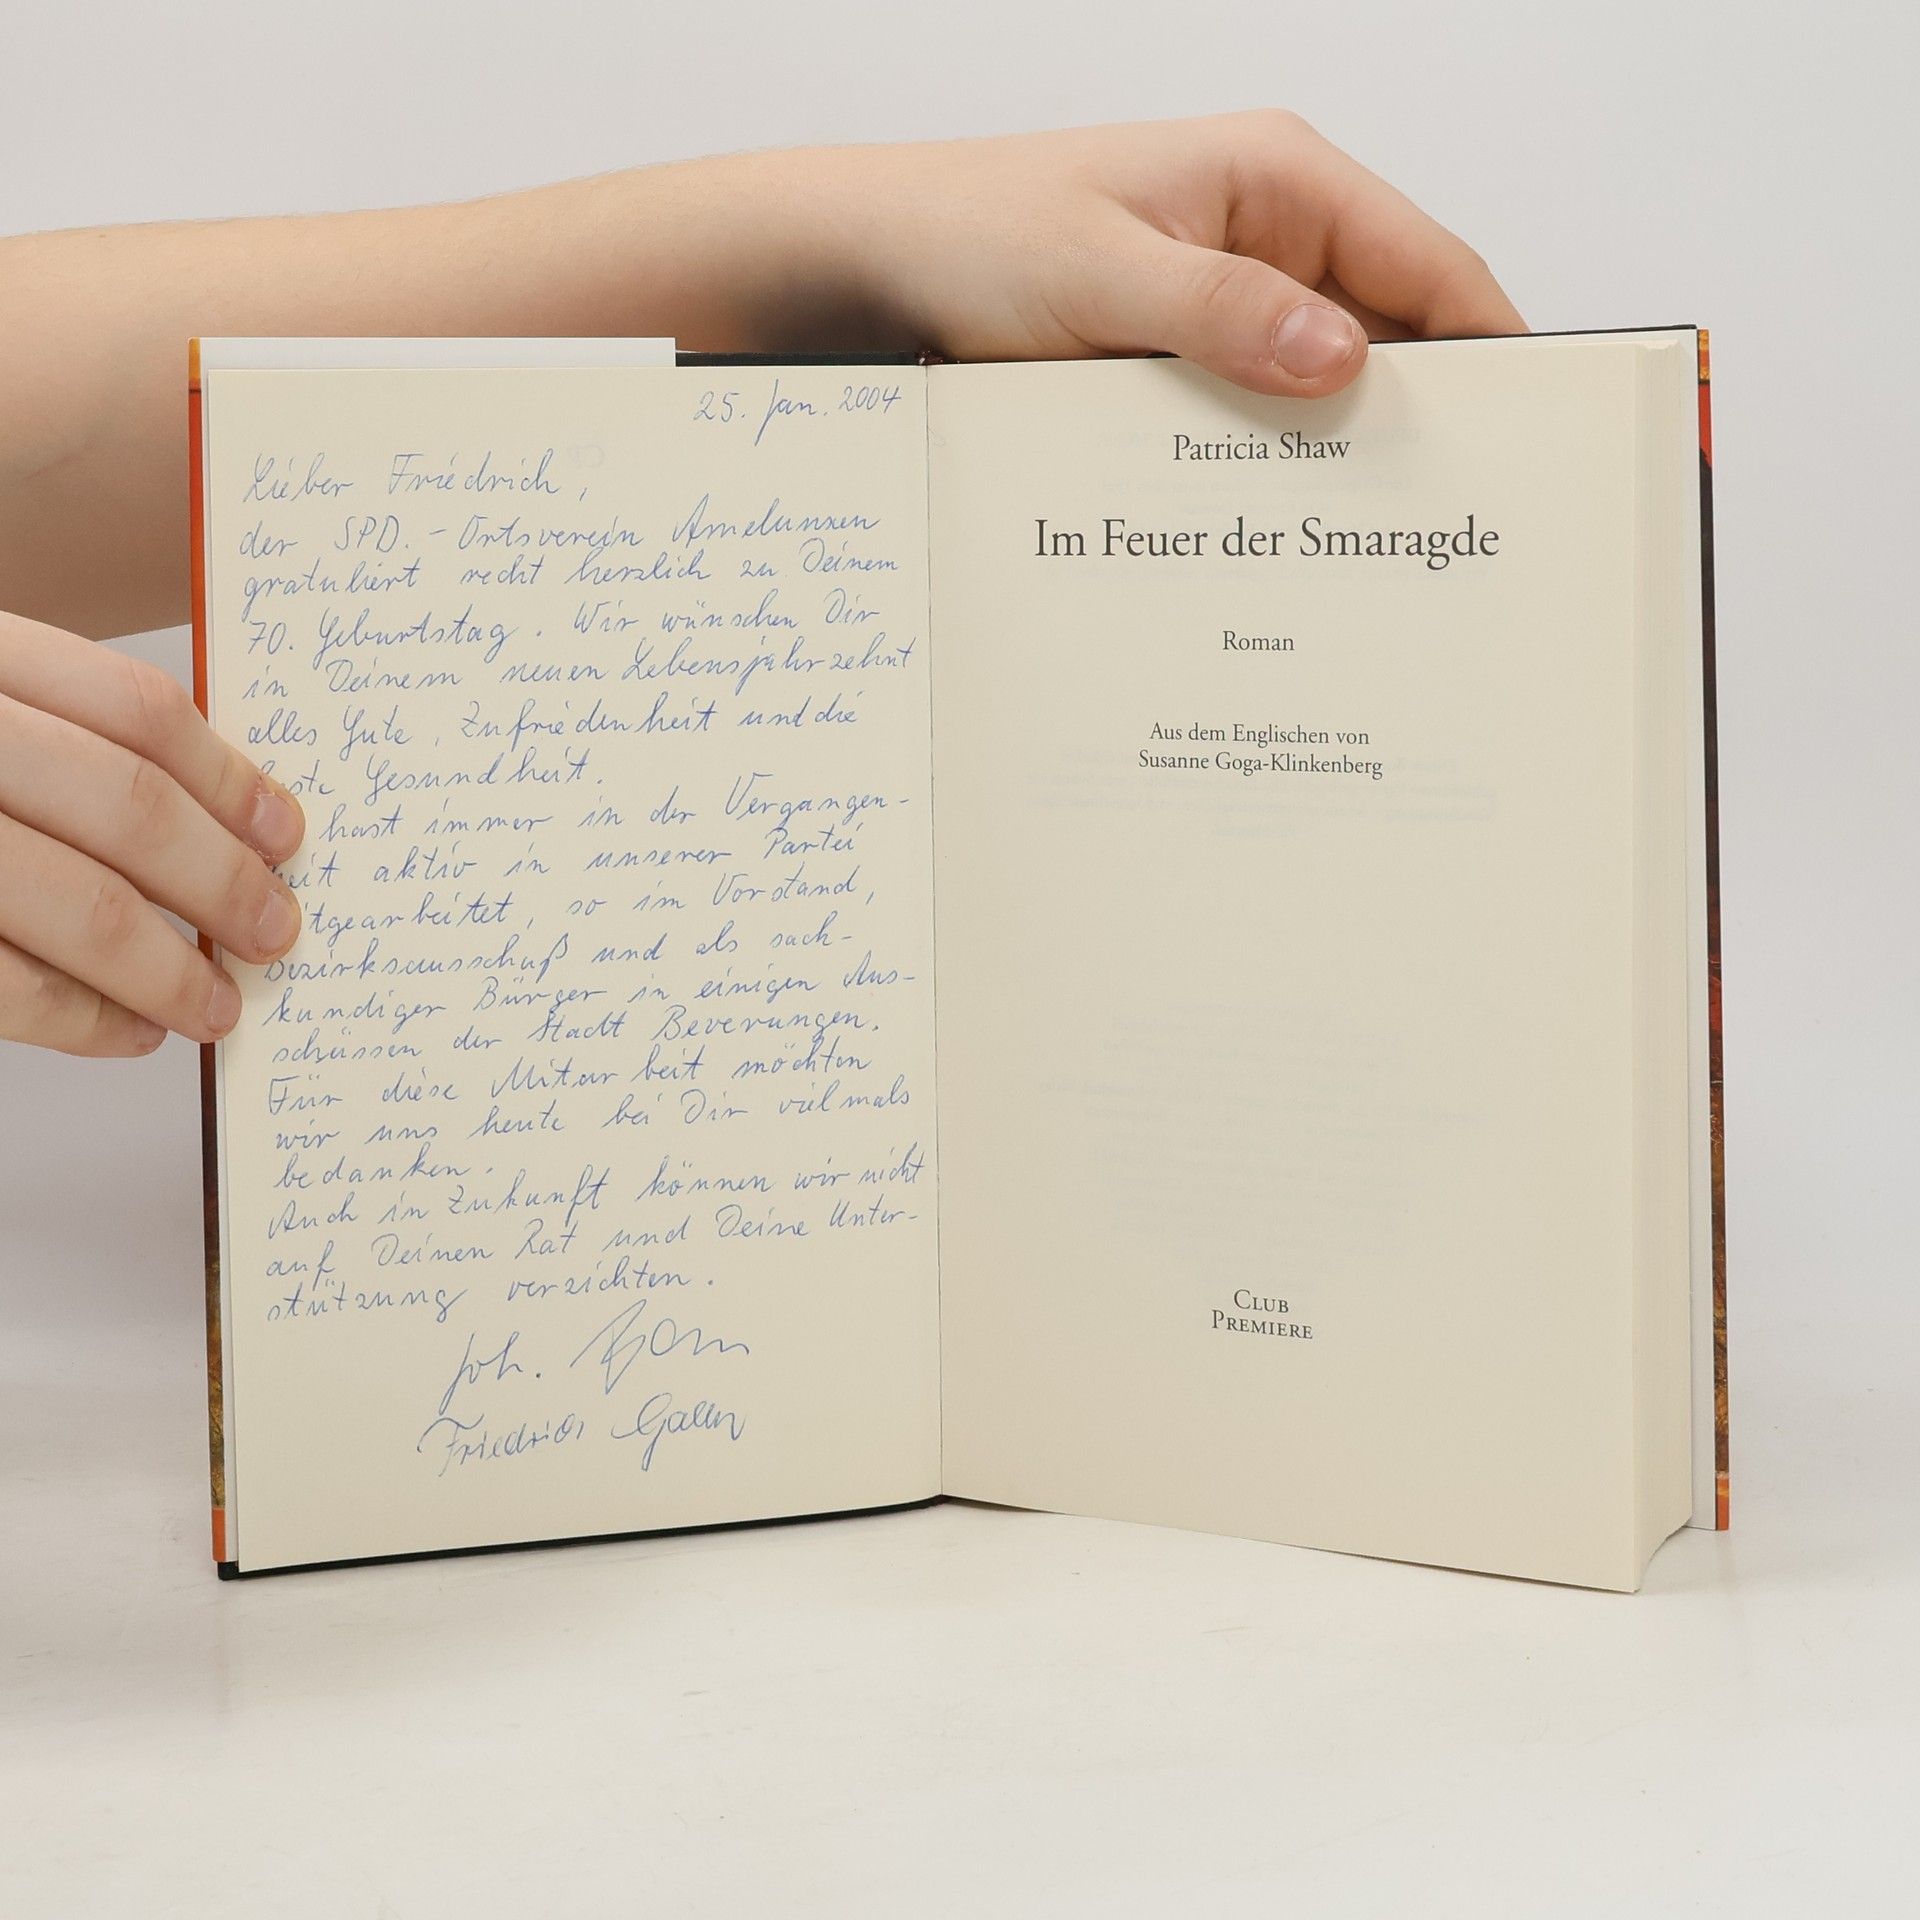 25. Jan. 2004
Lieber Friedrich,
der SPD.-Ortsverein Amelunxen
gratuliert recht herzlich zu Deinem
70. Geburtstag. Wir wünschen Dir
in Deinem neuen Lebensjahrzehnt
alles Gute, Zufriedenheit und die
Gesundheit.
hast immer in der Vergangen-
heit aktiv in unserer Partei
itgearbeitet, so im Vorstand,
Bezirksausschuß und als sach-
kundiger Bürger in einigen Aus-
schüssen der Stadt Beverungen.
Für diese Mitarbeit möchten
wir uns heute bei Dir vielmals
bedanken.
Auch in Zukunft können wir nicht
auf Deinen Rat und Deine Unter-
stützung verzichten.
Joh.
Friedrich
Patricia Shaw
Im Feuer der Smaragde
Roman
Aus dem Englischen von
Susanne Goga-Klinkenberg
CLUB
PREMIERE